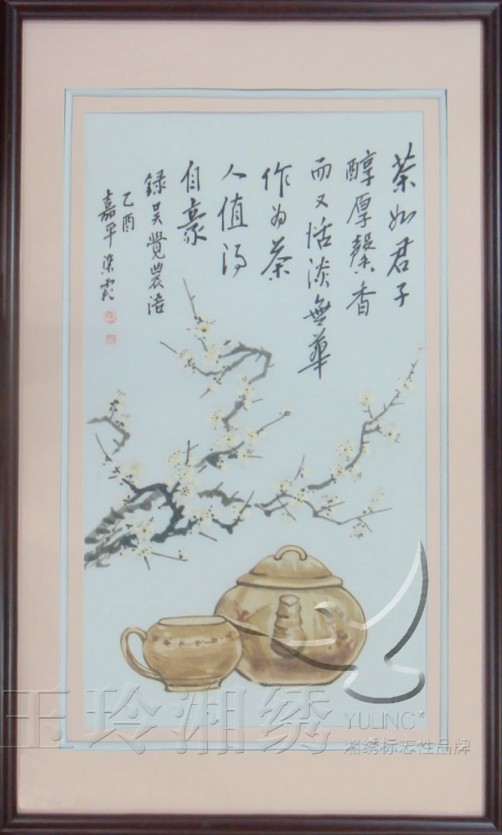 茶如君子
醇厚馨香
而又恬淡無華
作为茶
人值得
自豪
録吴覺農语
乙酉
嘉平
玉玲湘绣
YULING®
湘绣标志性品牌